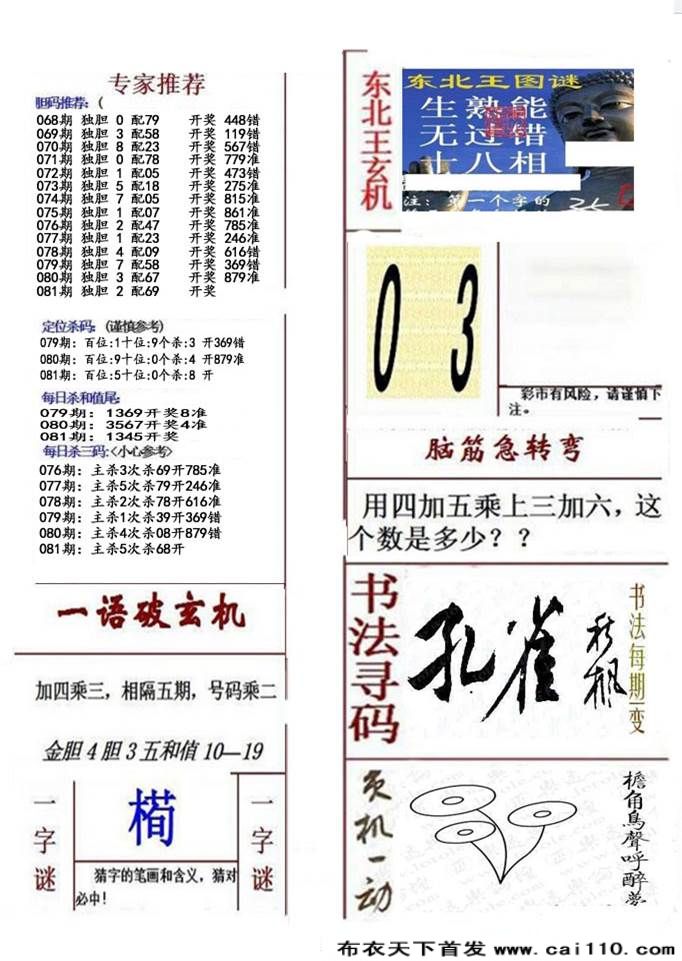 专家推荐
胆码推荐:(
068期 独胆 0 配79 开奖 448错
069期 独胆 3 配58 开奖 119错
070期 独胆 8 配23 开奖 567错
071期 独胆 0 配78 开奖 779准
072期 独胆 1 配05 开奖 473错
073期 独胆 5 配18 开奖 275准
074期 独胆 7 配05 开奖 815准
075期 独胆 1 配07 开奖 861准
076期 独胆 2 配47 开奖 785准
077期 独胆 1 配23 开奖 246准
078期 独胆 4 配09 开奖 616错
079期 独胆 7 配58 开奖 369错
080期 独胆 3 配67 开奖 879准
081期 独胆 2 配69 开奖
定位杀码:(谨慎参考)
079期:百位:1十位:9个杀:3 开369错
080期:百位:9十位:0个杀:4 开879准
081期:百位:5十位:0个杀:8 开
每日杀和值尾:
079期:1369开奖8准
080期:3567开奖4准
081期:1345开奖
每日杀三码:<小心参考>
076期:主杀3次杀69开785准
077期:主杀5次杀79开246准
078期:主杀2次杀78开616准
079期:主杀1次杀39开369错
080期:主杀4次杀08开879错
081期:主杀5次杀68开
一语破玄机
加四乘三,相隔五期,号码乘二
金胆4胆3五和值10—19
一字谜
椅
猜字的笔画和含义,猜对
必中!
一字谜
东北王玄机
东北王图谜
生熟能
无过错
十八相
注:第一个字的
03
彩市有风险,请谨慎下
注。
脑筋急转弯
用四加五乘上三加六,这
个数是多少??
书法寻码
孔雀
秋枫
书法每期一变
灵机一动
檐角鸟聲呼醉夢
布衣天下首发 www.cai110.com